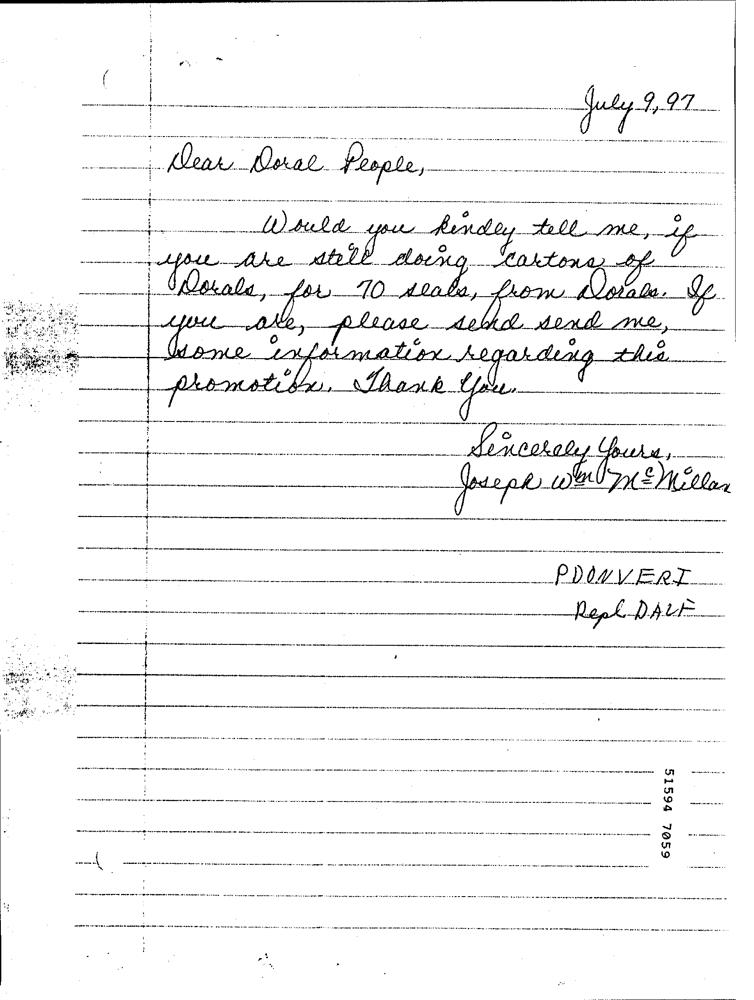 July 9, 97
Dear Doral People,
Would you kindley tell me, if
you are still doing cartons of
Dorals, for 70 seals, from Dorals. If
you are, please send send me,
some information regarding this
promotion. Thank You.
Sincerely Yours,
Joseph Wm McMillan
PDONVERI
Repl DALF
51594 7059